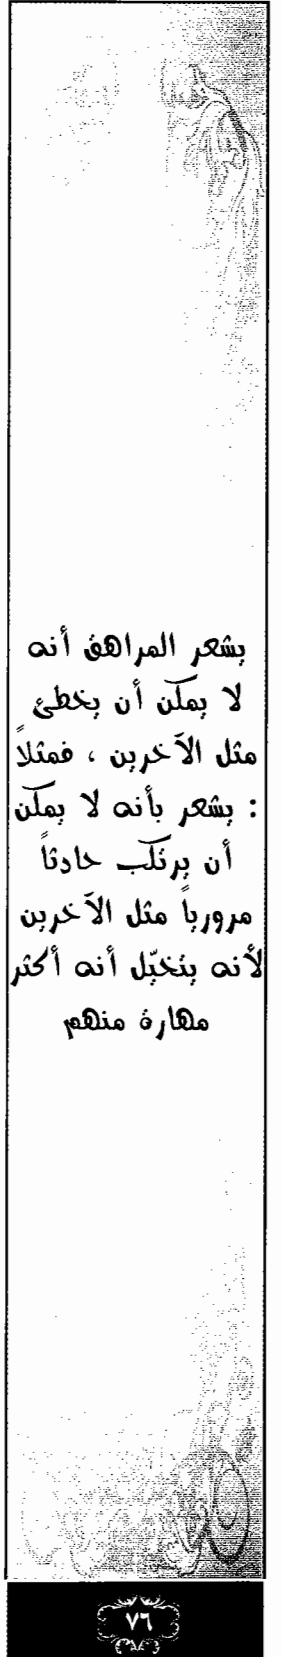 يشعر المراهق أنه
لا يمكن أن يخطئ
مثل الآخرين ، فمثلاً
: يشعر بأنه لا يمكن
أن يرتكب حادثاً
مرورياً مثل الآخرين
لأنه يتخيّل أنه أكثر
مهارة منهم
٧٦